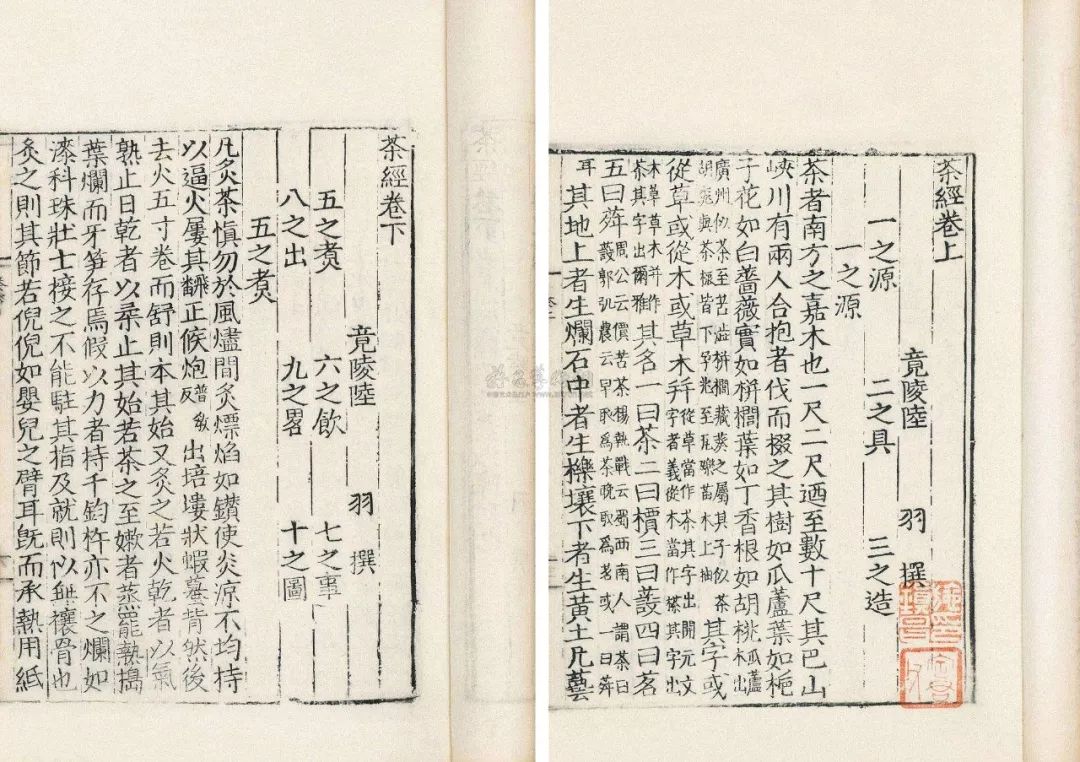 茶經卷上
竟陵陸 羽 撰
一之源 二之具 三之造
一之源
茶者南方之嘉木也一尺二尺迺至數十尺其巴山
峽川有兩人合抱者伐而掇之其樹如瓜蘆葉如梔
子花如白薔薇實如栟櫚葉如丁香根如胡桃瓜蘆木出
廣州似茶至苦澁栟櫚藏葵之屬其子似茶胡桃與茶根皆下孕兆至瓦礫苗木上抽其字或
從草或從木或草木幷從草當作茶其字出開元文字者義從木當作㮈其字出
本草草木幷作茶其字出爾雅其名一曰茶二曰檟三曰蔎四曰茗
五曰荈周公云檟苦茶楊執戟云蜀西南人謂茶曰蔎郭弘農云早取爲茶晚取爲茗或一曰荈
耳其地上者生爛石中者生櫟壤下者生黃土凡藝
茶經卷下
竟陵陸 羽 撰
五之煑 六之飲 七之事
八之出 九之畧 十之圖
五之煑
凡炙茶慎勿於風燼間炙熛焰如鑚使炎凉不均持
以逼火屢其飜正候炮普敎反出培塿狀蝦蟇背然後
去火五寸卷而舒則本其始又炙之若火乾者以氣
熟止日乾者以柔止其始若茶之至嫩者蒸罷熱搗
葉爛而牙笋存焉假以力者持千鈞杵亦不之爛如
漆科珠壯士接之不能駐其指及就則似無禳骨也
炙之則其節若倪倪如嬰兒之臂耳旣而承熱用紙